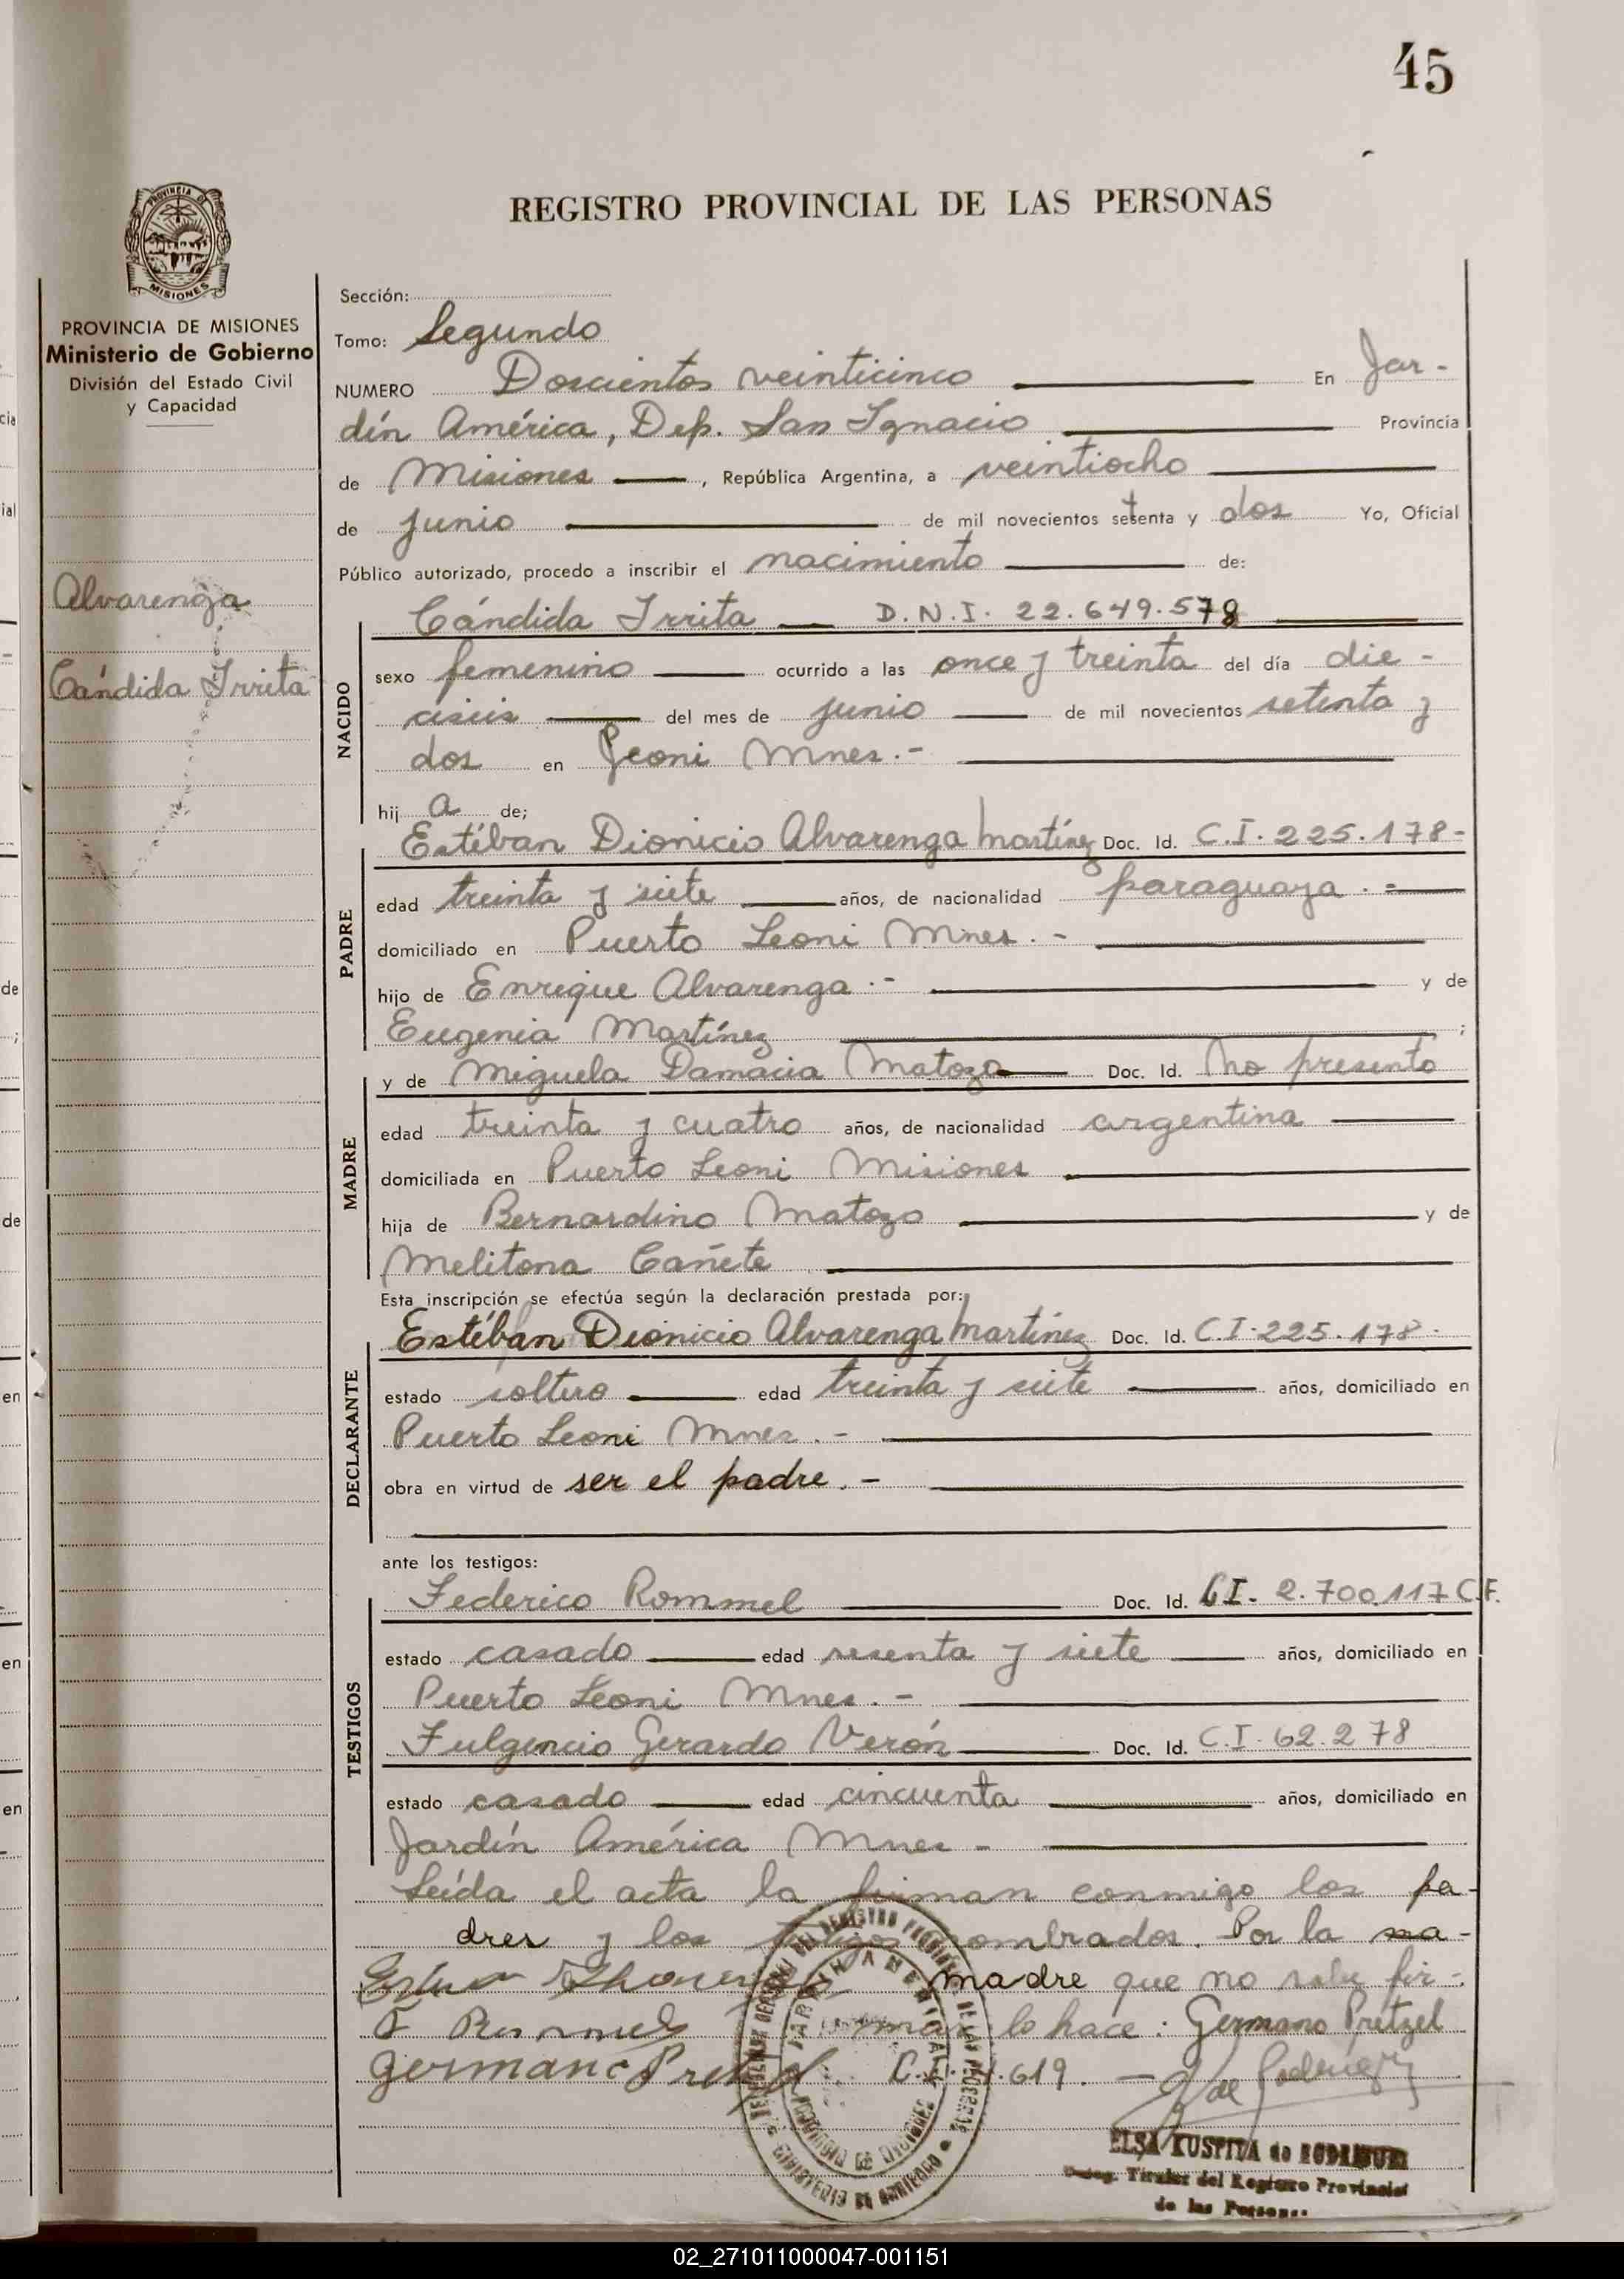 45
REGISTRO PROVINCIAL DE LAS PERSONAS
PROVINCIA DE MISIONES
Ministerio de Gobierno
División del Estado Civil
y Capacidad
Alvarenga
Cándida Irrita
Sección:
Tomo: Segundo
NUMERO Doscientos veinticinco En Jar-
dín América, Dep. San Ignacio Provincia
de Misiones, República Argentina, a veintiocho
de junio de mil novecientos setenta y dos Yo, Oficial
Público autorizado, procedo a inscribir el nacimiento de:
Cándida Irrita D.N.I. 22.649.578
NACIDO
sexo femenino ocurrido a las once y treinta del día die-
ciséis del mes de junio de mil novecientos setenta y
dos en Leoni Mnes.-
hij a de;
Estéban Dionicio Alvarenga Martínez Doc. Id. C.I. 225.178-
PADRE
edad treinta y siete años, de nacionalidad paraguaya.-
domiciliado en Puerto Leoni Mnes.-
hijo de Enrique Alvarenga.- y de
Eugenia Martínez ;
y de Miguela Damacia Matozo Doc. Id. No presentó
MADRE
edad treinta y cuatro años, de nacionalidad argentina
domiciliada en Puerto Leoni Misiones
hija de Bernardino Matozo y de
Melitona Cañete
Esta inscripción se efectúa según la declaración prestada por:
Estéban Dionicio Alvarenga Martínez Doc. Id. C.I. 225.178.
DECLARANTE
estado soltero edad treinta y siete años, domiciliado en
Puerto Leoni Mnes.-
obra en virtud de ser el padre.-
ante los testigos:
Federico Rommel Doc. Id. C.I. 2.700.117 C.F.
TESTIGOS
estado casado edad sesenta y siete años, domiciliado en
Puerto Leoni Mnes.-
Fulgencio Gerardo Verón Doc. Id. C.I. 62.278
estado casado edad cincuenta años, domiciliado en
Jardín América Mnes-
Leída el acta la firman conmigo los pa-
dres y los testigos nombrados. Por la ma-
madre que no sabe fir-
mar lo hace: Germano Pretzel
Germano Pretzel
ELSA KUSPITA de RODRIGUEZ
Titular del Registro Provincial
de las Personas
02_271011000047-001151